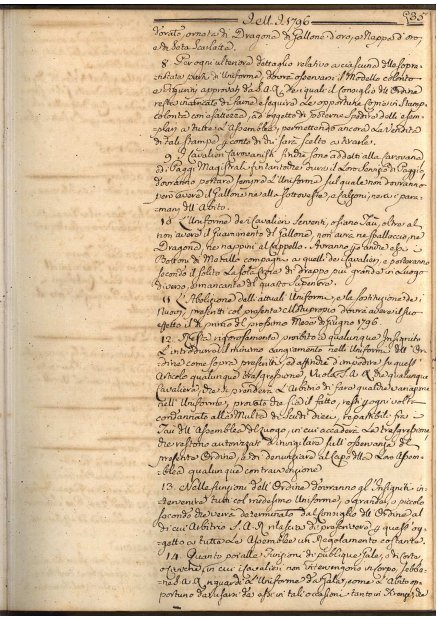 Dell' A. 1796 235
dorato, ornate di Dragona di Gallone d'oro, e Nappa d'oro,
e di Seta Scarlatta.
8. Per ogni ulteriore dettaglio relativo a ciascuna delle sopra
enunciate di Uniforme, dovrà osservarsi il Modello colorito
approvati da S.A.R. dei quali il Consiglio dell'Ordine
resta incaricato di farne eseguire le opportune Copie in Stampa
colorita con esattezza, ad oggetto di poterne spedire delle esem-
plari a tutte le Assemblee, permettendo ancora la Vendita
di tali Stampe, a conto di chi sarà scelto a tirarle.
9. I Cavalieri Carovanisti finchè sono addetti alla Carovana
di Paggi Magistrali,
dovranno portare sempre l'Uniforme sul quale non dovranno
però avere il Gallone nè alla Sottoveste, e Calzoni, nè ai para-
mani dell'Abito.
10. L'Uniforme dei Cavalieri Serventi, ossiano Tau, oltre al
non avere il Guarnimento di Gallone, non avrà nè Spallaccio, nè
Dragona, nè nappini al Cappello. Avranno però anche essi
Bottoni di Metallo compagni a quelli dei Cavalieri, e porteranno
secondo il solito la sola Croce di drappo più grande in luogo
diverso, e mancante di quarto Superiore.
11. L'Abolizione delli attuali Uniformi, e la sostituzione dei
nuovi, prescritti col presente dovrà avere il suo
effetto il dì primo del prossimo Mese di Giugno 1796.
12. Resta rigorosamente proibito a qualunque Insignito
l'introdurre il minimo cangiamento nelli Uniformi dell'Or-
dine come sopra prescritti, ed affine d'impedire su quest'
Articolo qualunque trasgressione, Vuole S.A.R. che qualunque
Cavaliere, che si prenderà l'Arbitrio di fare qualche variazione
nell'Uniforme, provato che sia il fatto, resti ogni volta
condannato alla Multa di Scudi dieci, repartibili fra i
Tau dell'Assemblea del luogo, in cui accaderà la trasgressione,
che restano autorizzati d'invigilare sull'osservanza del
presente Ordine, e di denunziare al Capo della loro Assem-
blea qualunque contravvenzione.
13. Nelle funzioni dell'Ordine dovranno gl'Insigniti in-
tervenire tutti col medesimo Uniforme, o grande, o piccolo
secondo che verrà determinato dal Consiglio dell'Ordine al
di cui Arbitrio S.A.R. rilascia di prescrivere a quest'og-
getto a tutte le Assemblee un Regolamento costante.
14. Quanto poi alle Funzioni di pubbliche Gale, e di Corte,
o Pariche, in cui i Cavalieri non intervengono in corpo, sebbe-
ne S.A.R. riguardi l'Uniforme da Gala, come l'Abito op-
portuno da usarsi da essi in tali occasioni tanto in Firenze, che